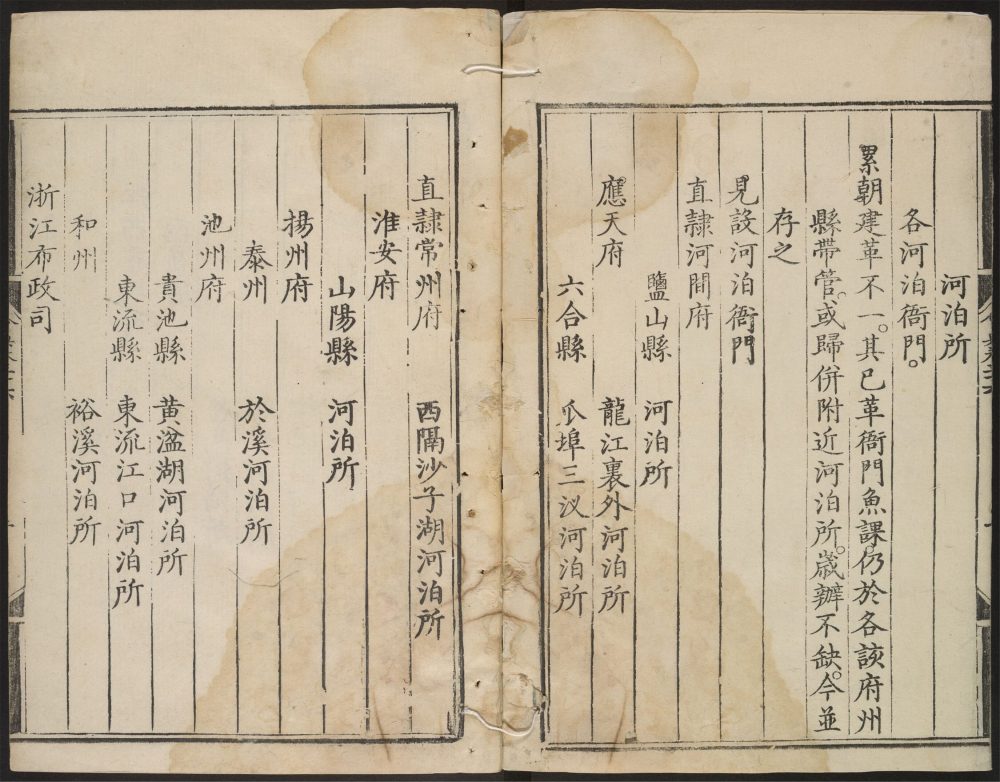 河泊所
各河泊衙門。
累朝建革不一。其已革衙門魚課仍於各該府州
縣帶管。或歸併附近河泊所。歲辦不缺。今並
存之
見設河泊衙門
直隸河間府
鹽山縣 河泊所
應天府 龍江裏外河泊所
六合縣 瓜埠三汊河泊所
直隸常州府 西隔沙子湖河泊所
淮安府
山陽縣 河泊所
揚州府
泰州 於溪河泊所
池州府
貴池縣 黄湓湖河泊所
東流縣 東流江口河泊所
和州 裕溪河泊所
浙江布政司